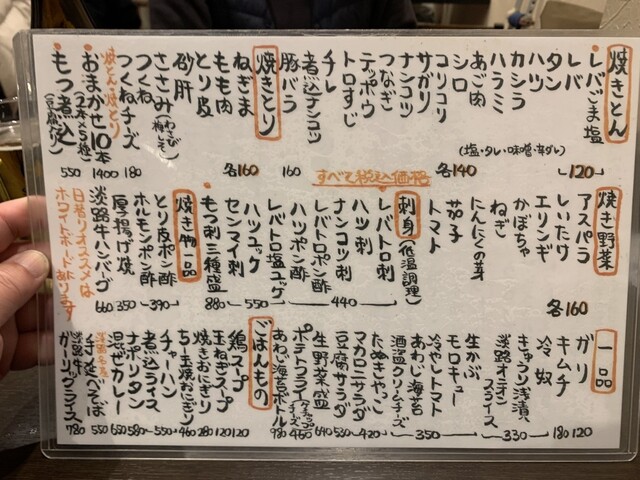 焼きとん
レバごま塩
レバ
タン
ハツ
カシラ
ハラミ
あご肉
シロ
コリコリ
サガリ
ナンコツ
つなぎ
テッポウ
トロすじ
チレ
煮込ナンコツ
豚バラ
(塩・タレ・味噌・辛ダレ)
120
各140
160
焼きとり
ねぎま
もも肉
とり皮
砂肝
ささみ(わさび 梅しそ)
つくね
つくねチーズ
各160
180
焼とん・焼とり
おまかせ10本
(2本×5種)
1400
もつ煮込
(豆腐入り)
550
すべて税込価格
焼き野菜
アスパラ
しいたけ
エリンギ
かぼちゃ
ねぎ
にんにくの芽
茄子
トマト
各160
刺身(低温調理)
レバトロ刺
ハツ刺
ナンコツ刺
レバトロポン酢
ハツポン酢
440
レバトロ塩ユッケ
ハツユッケ
550
センマイ刺
もつ刺三種盛
880
焼き物一品
とり皮ポン酢
ホルモンポン酢
390
厚揚げ焼
350
淡路牛ハンバーグ
660
日替りオススメは
ホワイトボードにあります
一品
ガリ
120
キムチ
180
冷奴
きゅうり浅漬
淡路オニオンスライス
330
生かぶ
モロキュー
冷やしトマト
あわじ海苔
酒盗クリームチーズ
350
たぬきやっこ
マカロニサラダ
420
豆腐サラダ
530
生野菜盛
640
ポテトフライ
460
あわじ海苔ボトル
980
ごはんもの
鶏スープ
120
玉ねぎスープ
120
焼きおにぎり
280
チーズ焼おにぎり
460
チャーハン
煮込ライス
550
ナポリタン
580
混ぜカレー
650
手延べそば
550
淡路牛
ガーリックライス
780